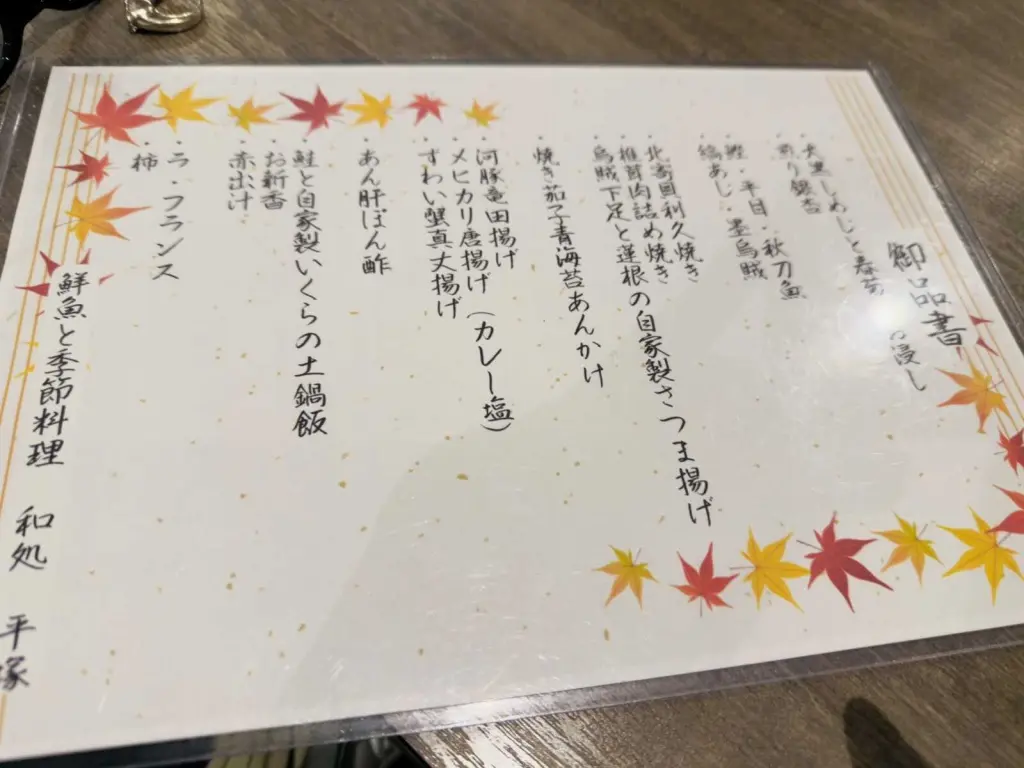 御品書
・大黒しめじと春菊 お浸し
・煎り銀杏
・鰹・平目・秋刀魚
・縞あじ・墨烏賊
・北寄貝利久焼き
・椎茸肉詰め焼き
・烏賊下足と蓮根の自家製さつま揚げ
・焼き茄子青海苔あんかけ
・河豚竜田揚げ
・メヒカリ唐揚げ(カレー塩)
・ずわい蟹真丈揚げ
・あん肝ぽん酢
・鮭と自家製いくらの土鍋飯
・お新香
・赤出汁
・ラ・フランス
・柿
鮮魚と季節料理 和処 平塚